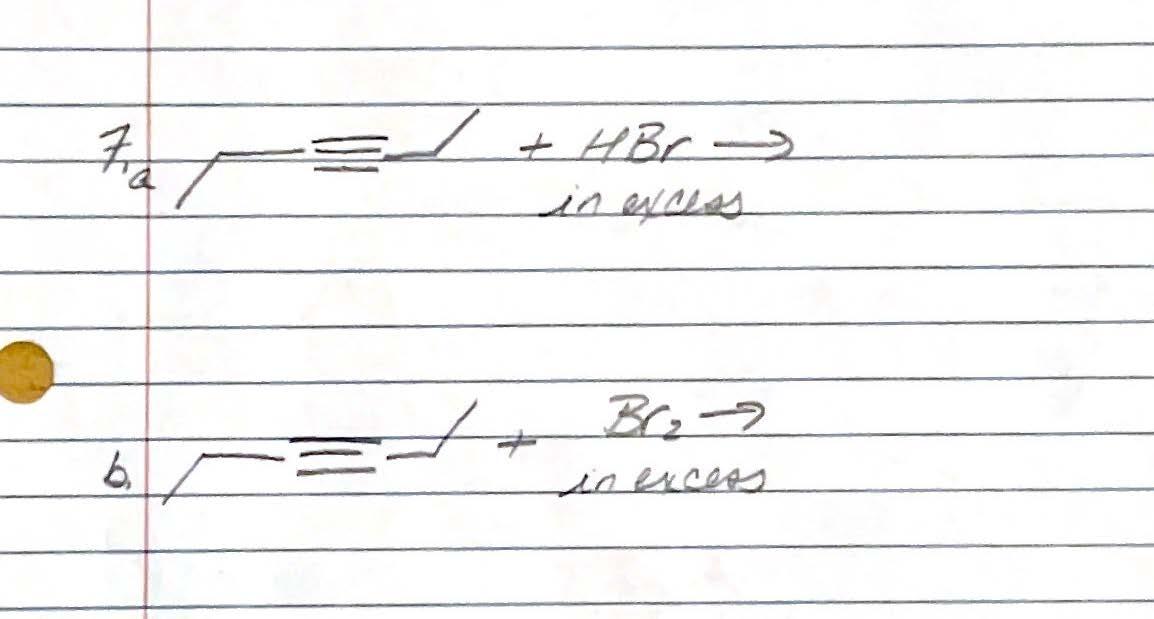 7.a + HBr →
in excess
b. + Br₂ →
in excess